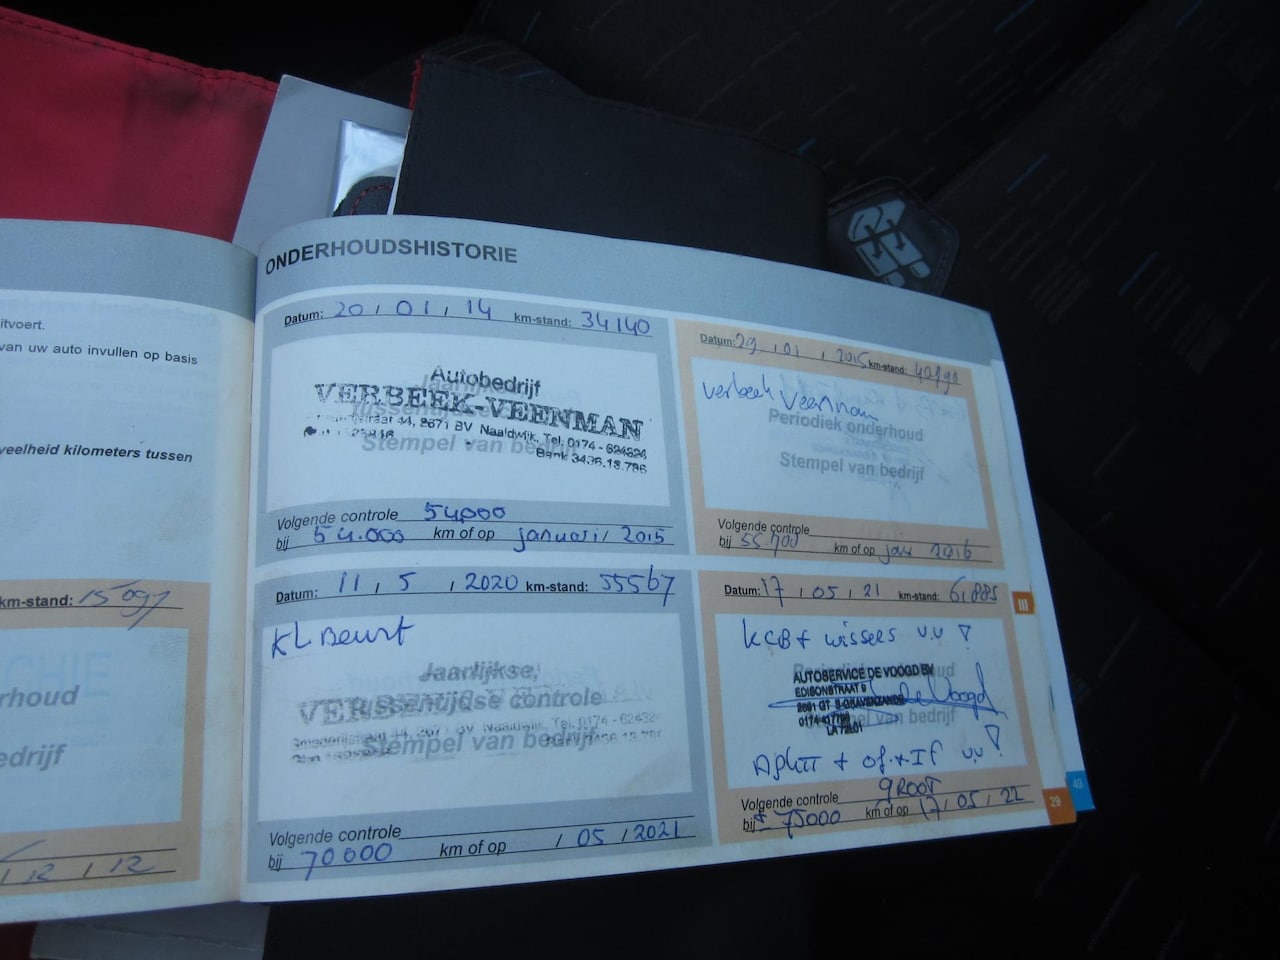 ONDERHOUDSHISTORIE
itvoert.
van uw auto invullen op basis
veelheid kilometers tussen
km-stand: 15097
rhoud
edrijf
12 12
Datum: 20 / 01 / 14 km-stand: 34140
Autobedrijf
VERBEEK-VEENMAN
44, 2671 BV Naaldwijk, Tel. 0174 - 624324
Stempel van bedrijf
Bank 3436.13.786
Volgende controle 54.000
bij 54.000 km of op januari / 2015
Datum: 29 / 01 / 2015 km-stand: 40790
Verbeek Veenman
Periodiek onderhoud
Stempel van bedrijf
Volgende controle
bij 55.700 km of op jan 2016
Datum: 11 / 5 / 2020 km-stand: 55567
KL Beurt
Jaarlijkse,
tussentijdse controle
Stempel van bedrijf
Volgende controle
bij 70000 km of op / 05 / 2021
Datum: 17 / 05 / 21 km-stand: 61885
KCB + wissers v.v !
AUTOSERVICE DE VOOGD BV
EDISONSTRAAT 9
2691 GT 'S-GRAVENZANDE
de Voogd
van bedrijf
v.v !
Volgende controle GROOT
bij ± 75000 km of op 17 / 05 / 22
III
29
49